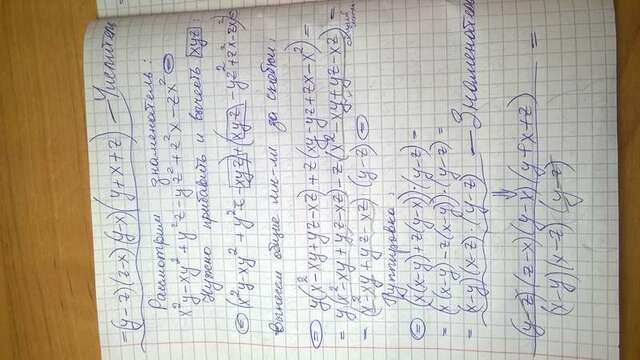 =(y-z)(z-x)(y-x)(y+x+z) — Числитель
Рассмотрим знаменатель:
x²y-xy²+y²z-yz²+z²x-zx² =
Нужно прибавить и вычесть xyz:
= (x²y-xy²+y²z-xyz)+(xyz-yz²+z²x-zx²)
Вынесем общие мн-ли за скобки:
= y(x²-xy+yz-xz)+z(xy-yz+zx-x²) =
= y(x²-xy+yz-xz)-z(x²-xy+yz-xz) =
общий
= (x²-xy+yz-xz)(y-z) =
Группировка:
= (x(x-y)+z(y-x))·(y-z) =
= (x(x-y)-z(x-y))·(y-z) =
= (x-y)(x-z)·(y-z) — Знаменатель
(y-z)(z-x)(y-x)(y+x+z)
(x-y)(x-z)(y-z) =